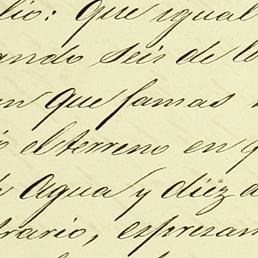 lio: Que igual
ando seis de lo
en que jamas
o el terreno en q
Agua y diez a
trario, espresam